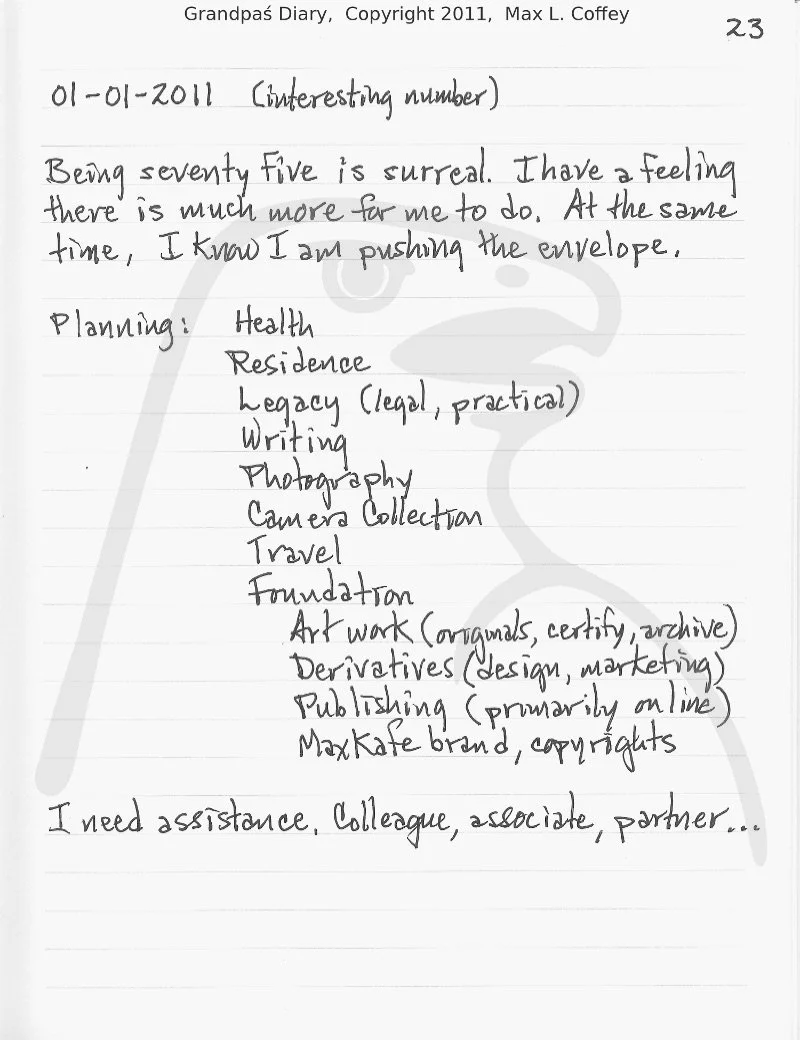 Grandpaś Diary, Copyright 2011, Max L. Coffey
23
01-01-2011 (interesting number)
Being seventy five is surreal. I have a feeling
there is much more for me to do. At the same
time, I know I am pushing the envelope.
Planning: Health
Residence
Legacy (legal, practical)
Writing
Photography
Camera Collection
Travel
Foundation
Art work (originals, certify, archive)
Derivatives (design, marketing)
Publishing (primarily online)
MaxKafe brand, copyrights
I need assistance. Colleague, associate, partner...